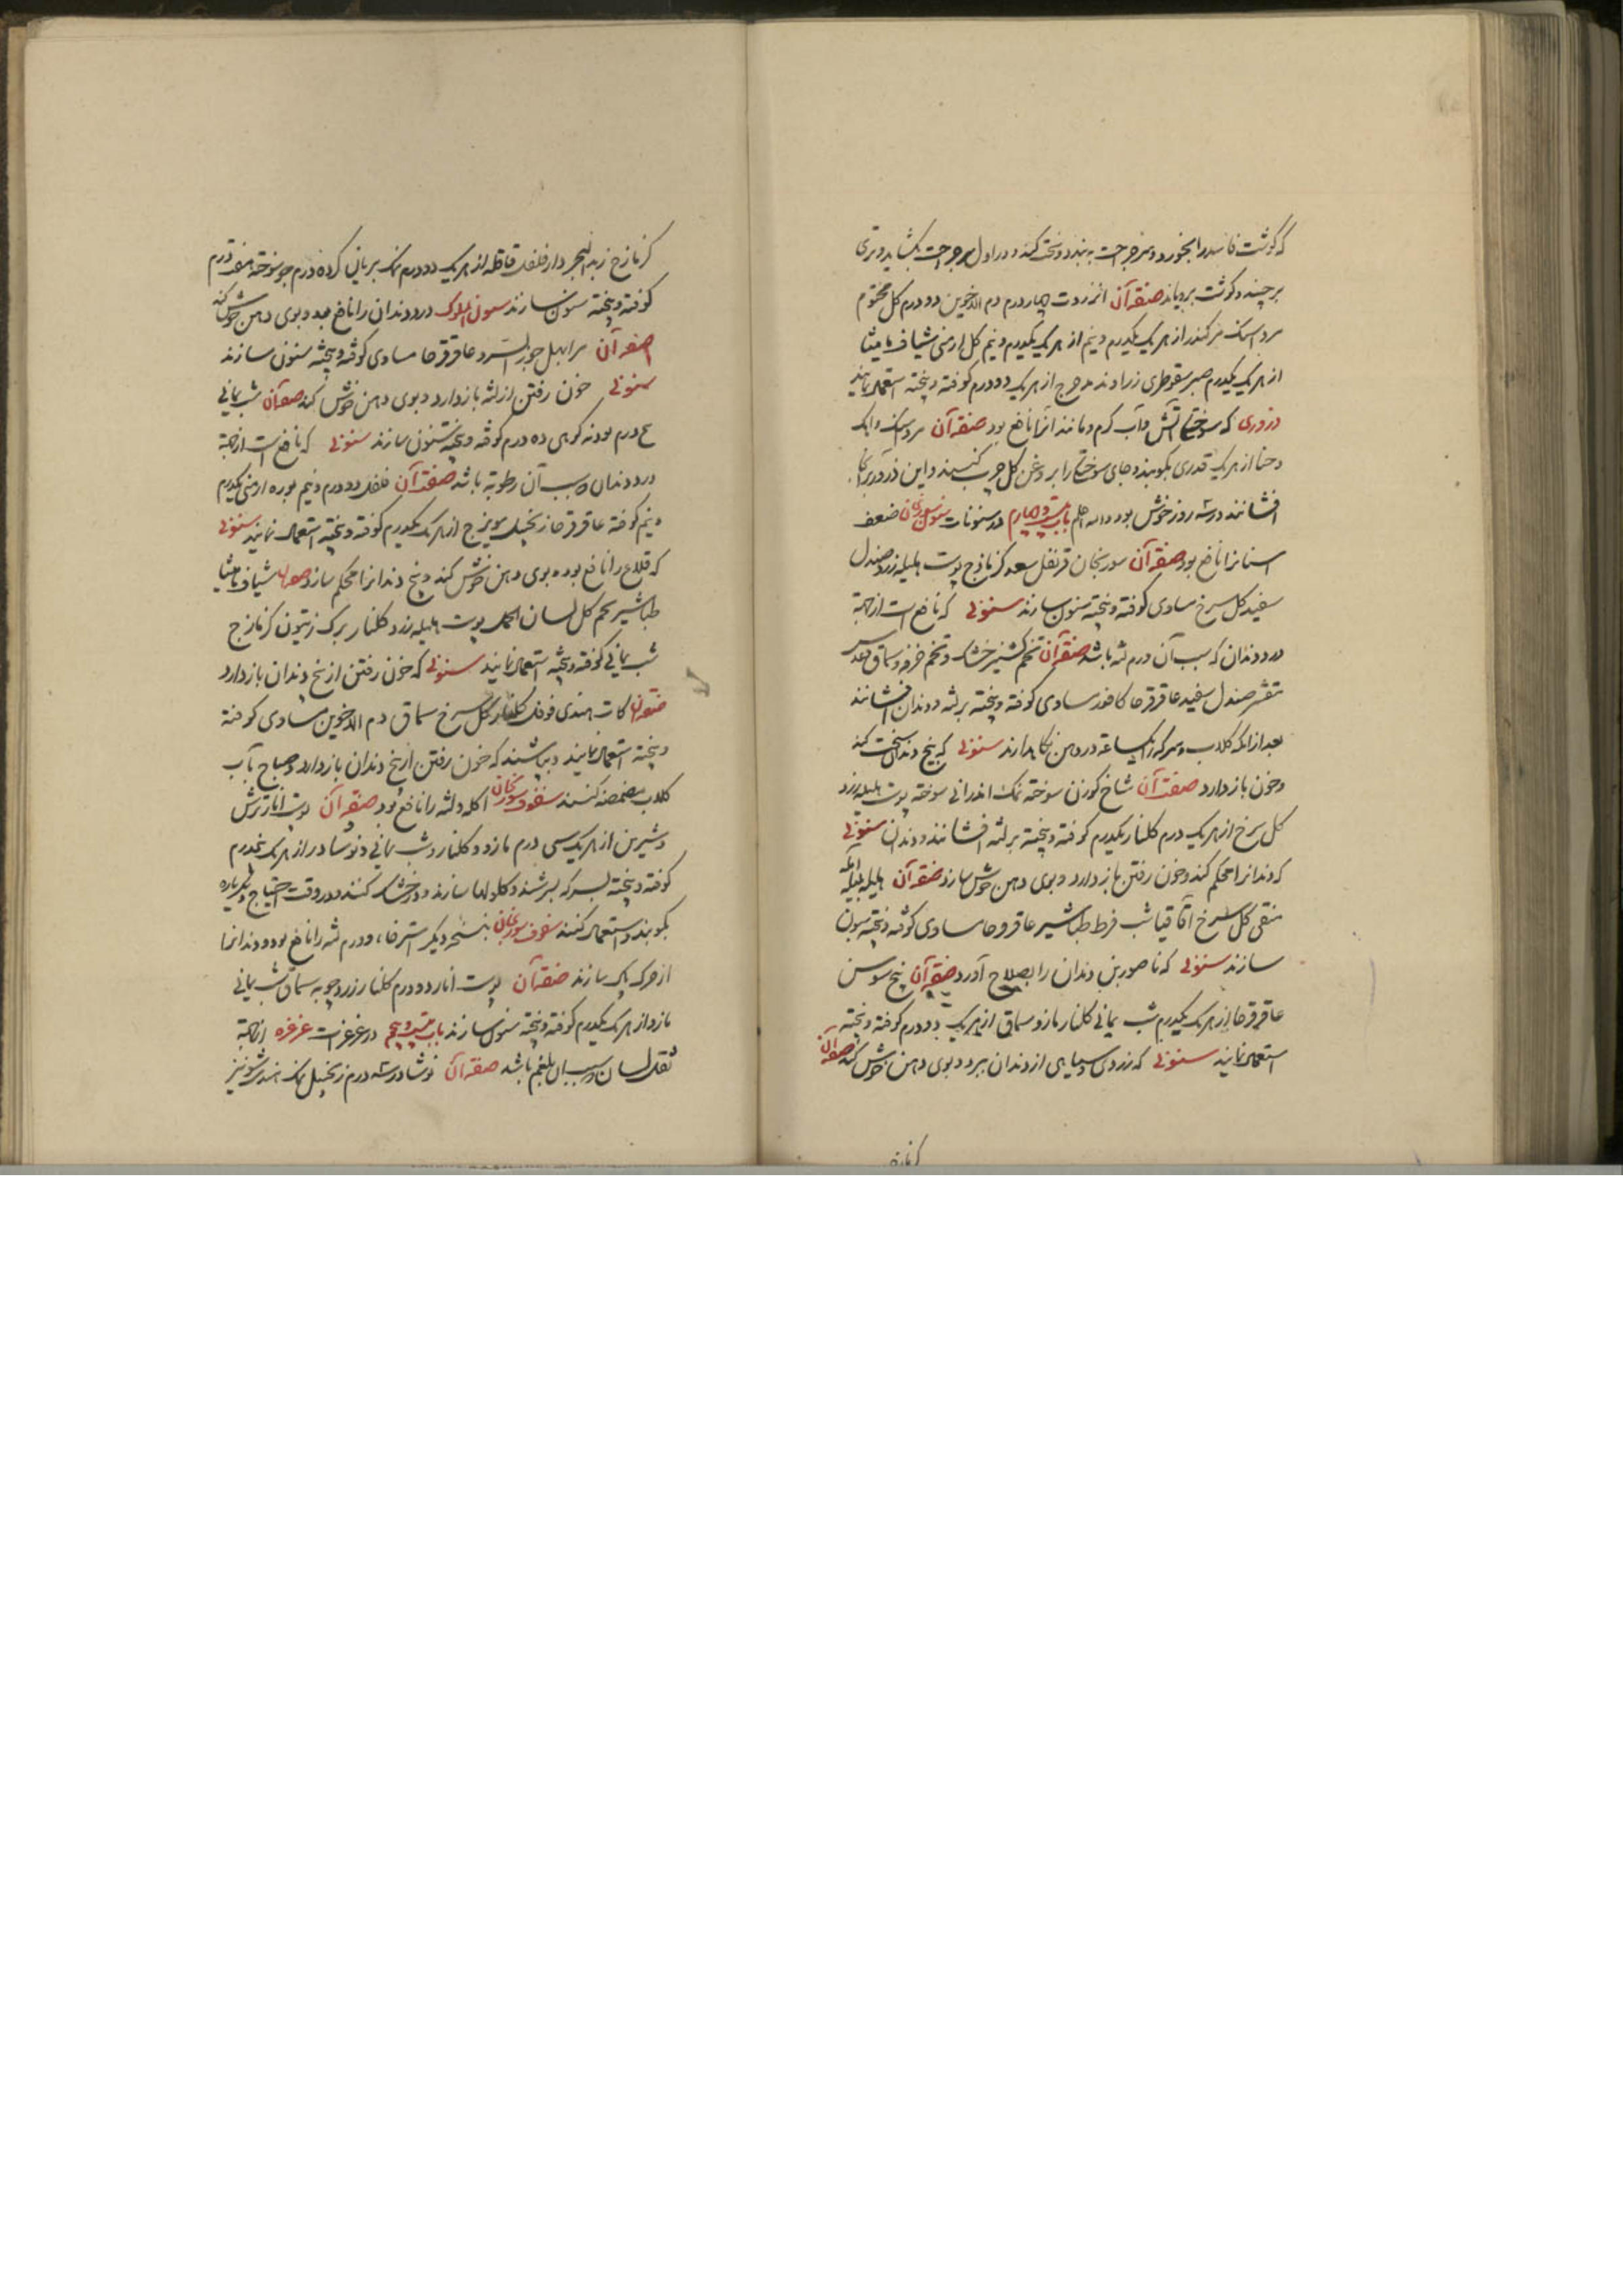 که گوشت فاسد را بخورد و سر جراحت به بندد و سخت کند و در اول سر جراحت بکشاید و تری
برچیند و گوشت برویاند صفة آن انزروت چهار درم دم الاخوین دو درم گل مختوم
مرداسنک کندر از هر یک یکدرم و نیم از هر یک یکدرم و نیم گل ارمنی شیاف مامیثا
از هر یک یکدرم صبر سقوطری زراوند مدحرج از هر یک دو درم کوفته و بیخته استعمال نمایند
ذروری که سوختگی آتش و آب گرم و مانند آنرا نافع بود صفة آن مرداسنک و اهک
و حنا از هر یک قدری بکوبند و جای سوختگی را بروغن گل چرب کنند و این ذرور بر آنجا
افشانند در سه روز خوش بود والله اعلم باب بیست و چهارم در سنونات سنون سورنجان ضعف
اسنانرا نافع بود صفة آن سورنجان قرنفل سعد کزمازج پوست هلیله زرد صندل
سفید گل سرخ مساوی کوفته و بیخته سنون سازند سنونی که نافع است از جهة
درد دندان که سبب آن ورم لثه باشد صفة آن تخم کشنیز خشک و تخم خرفه و سماق و عدس
مقشر صندل سفید عاقرقرحا کافور مساوی کوفته و بیخته بر لثه و دندان افشانند
بعد از انکه گلاب و سرکه را یکساعة در دهن نگاه دارند سنونی که بیخ دندان سخت کند
و خون باز دارد صفة آن شاخ گوزن سوخته نمک اندرانی سوخته پوست هلیله زرد
گل سرخ از هر یک درم گلنار یکدرم کوفته و بیخته بر لثه افشانند و دندان سنونی
که دندانرا محکم کند و خون رفتن باز دارد و بوی دهن خوش سازد صفة آن هلیله بلیله آمله
منقی گل سرخ آقاقیا شب قرط طباشیر عاقرقرحا مساوی کوفته و بیخته سنون
سازند سنونی که ناصور بن دندان را بصلاح آورد صفة آن بیخ سوسن
عاقرقرحا از هر یک یکدرم شب یمانی گلنار مازو سماق از هر یک دو درم کوفته و بیخته
استعمال نمایند سنونی که زردی و سیاهی از دندان ببرد و بوی دهن خوش کند صفة آن
کزمازج
کزمازج زبد البحر دارفلفل قاقله از هر یک دو درم نمک بریان کرده درم جو سوخته هفت درم
کوفته و بیخته سنون سازند سنون الملوک درد دندان را نافع بود و بوی دهن خوش کند
صفة آن مر ابهل جوز السرو عاقرقرحا مساوی کوفته و بیخته سنون سازند
سنونی خون رفتن از لثه باز دارد و بوی دهن خوش کند صفة آن شب یمانی
درم پودنه کوهی ده درم کوفته و بیخته سنون سازند سنونی که نافع است از جهة
درد دندان که سبب آن رطوبة باشد صفة آن فلفل دو درم و نیم بوره ارمنی یکدرم
و نیم کوفته عاقرقرحا زنجبیل مویزج از هر یک یکدرم کوفته و بیخته استعمال نمایند سنونی
که قلاع را نافع بود و بوی دهن خوش کند و بیخ دندانرا محکم سازد صفة آن شیاف مامیثا
طباشیر تخم گل لسان الحمل پوست هلیله زرد گلنار برک زیتون کزمازج
شب یمانی کوفته و بیخته استعمال نمایند سنونی که خون رفتن از بیخ دندان باز دارد
صفة آن کات هندی فوفل گلنار گل سرخ سماق دم الاخوین مساوی کوفته
و بیخته استعمال نمایند و بپاشند که خون رفتن از بیخ دندان باز دارد و صباح بآب
گلاب مضمضه کنند سفوف سورنجان اکله و لثه را نافع بود صفة آن پوست انار ترش
و شیرین از هر یک سی درم مازو و گلنار و شب یمانی و نوشادر از هر یک درم
کوفته و بیخته بسرکه بسرشند و گلولها سازند و خشک کنند و در وقت احتیاج دیگرباره
بکوبند و استعمال کنند سفوف سورنجان بنسخه دیگر استرخاء و ورم لثه را نافع بود و دندانها
از حرک پاک سازند صفة آن پوست انار دو درم گلنار زردچوبه سماق شب یمانی
مازو از هر یک یکدرم کوفته و بیخته سنون سازند باب بیست و پنجم در غرغرات غرغره از جهة
ثقل لسان که سبب آن بلغم باشد صفة آن نوشادر سه درم زنجبیل نمک هندی شونیز